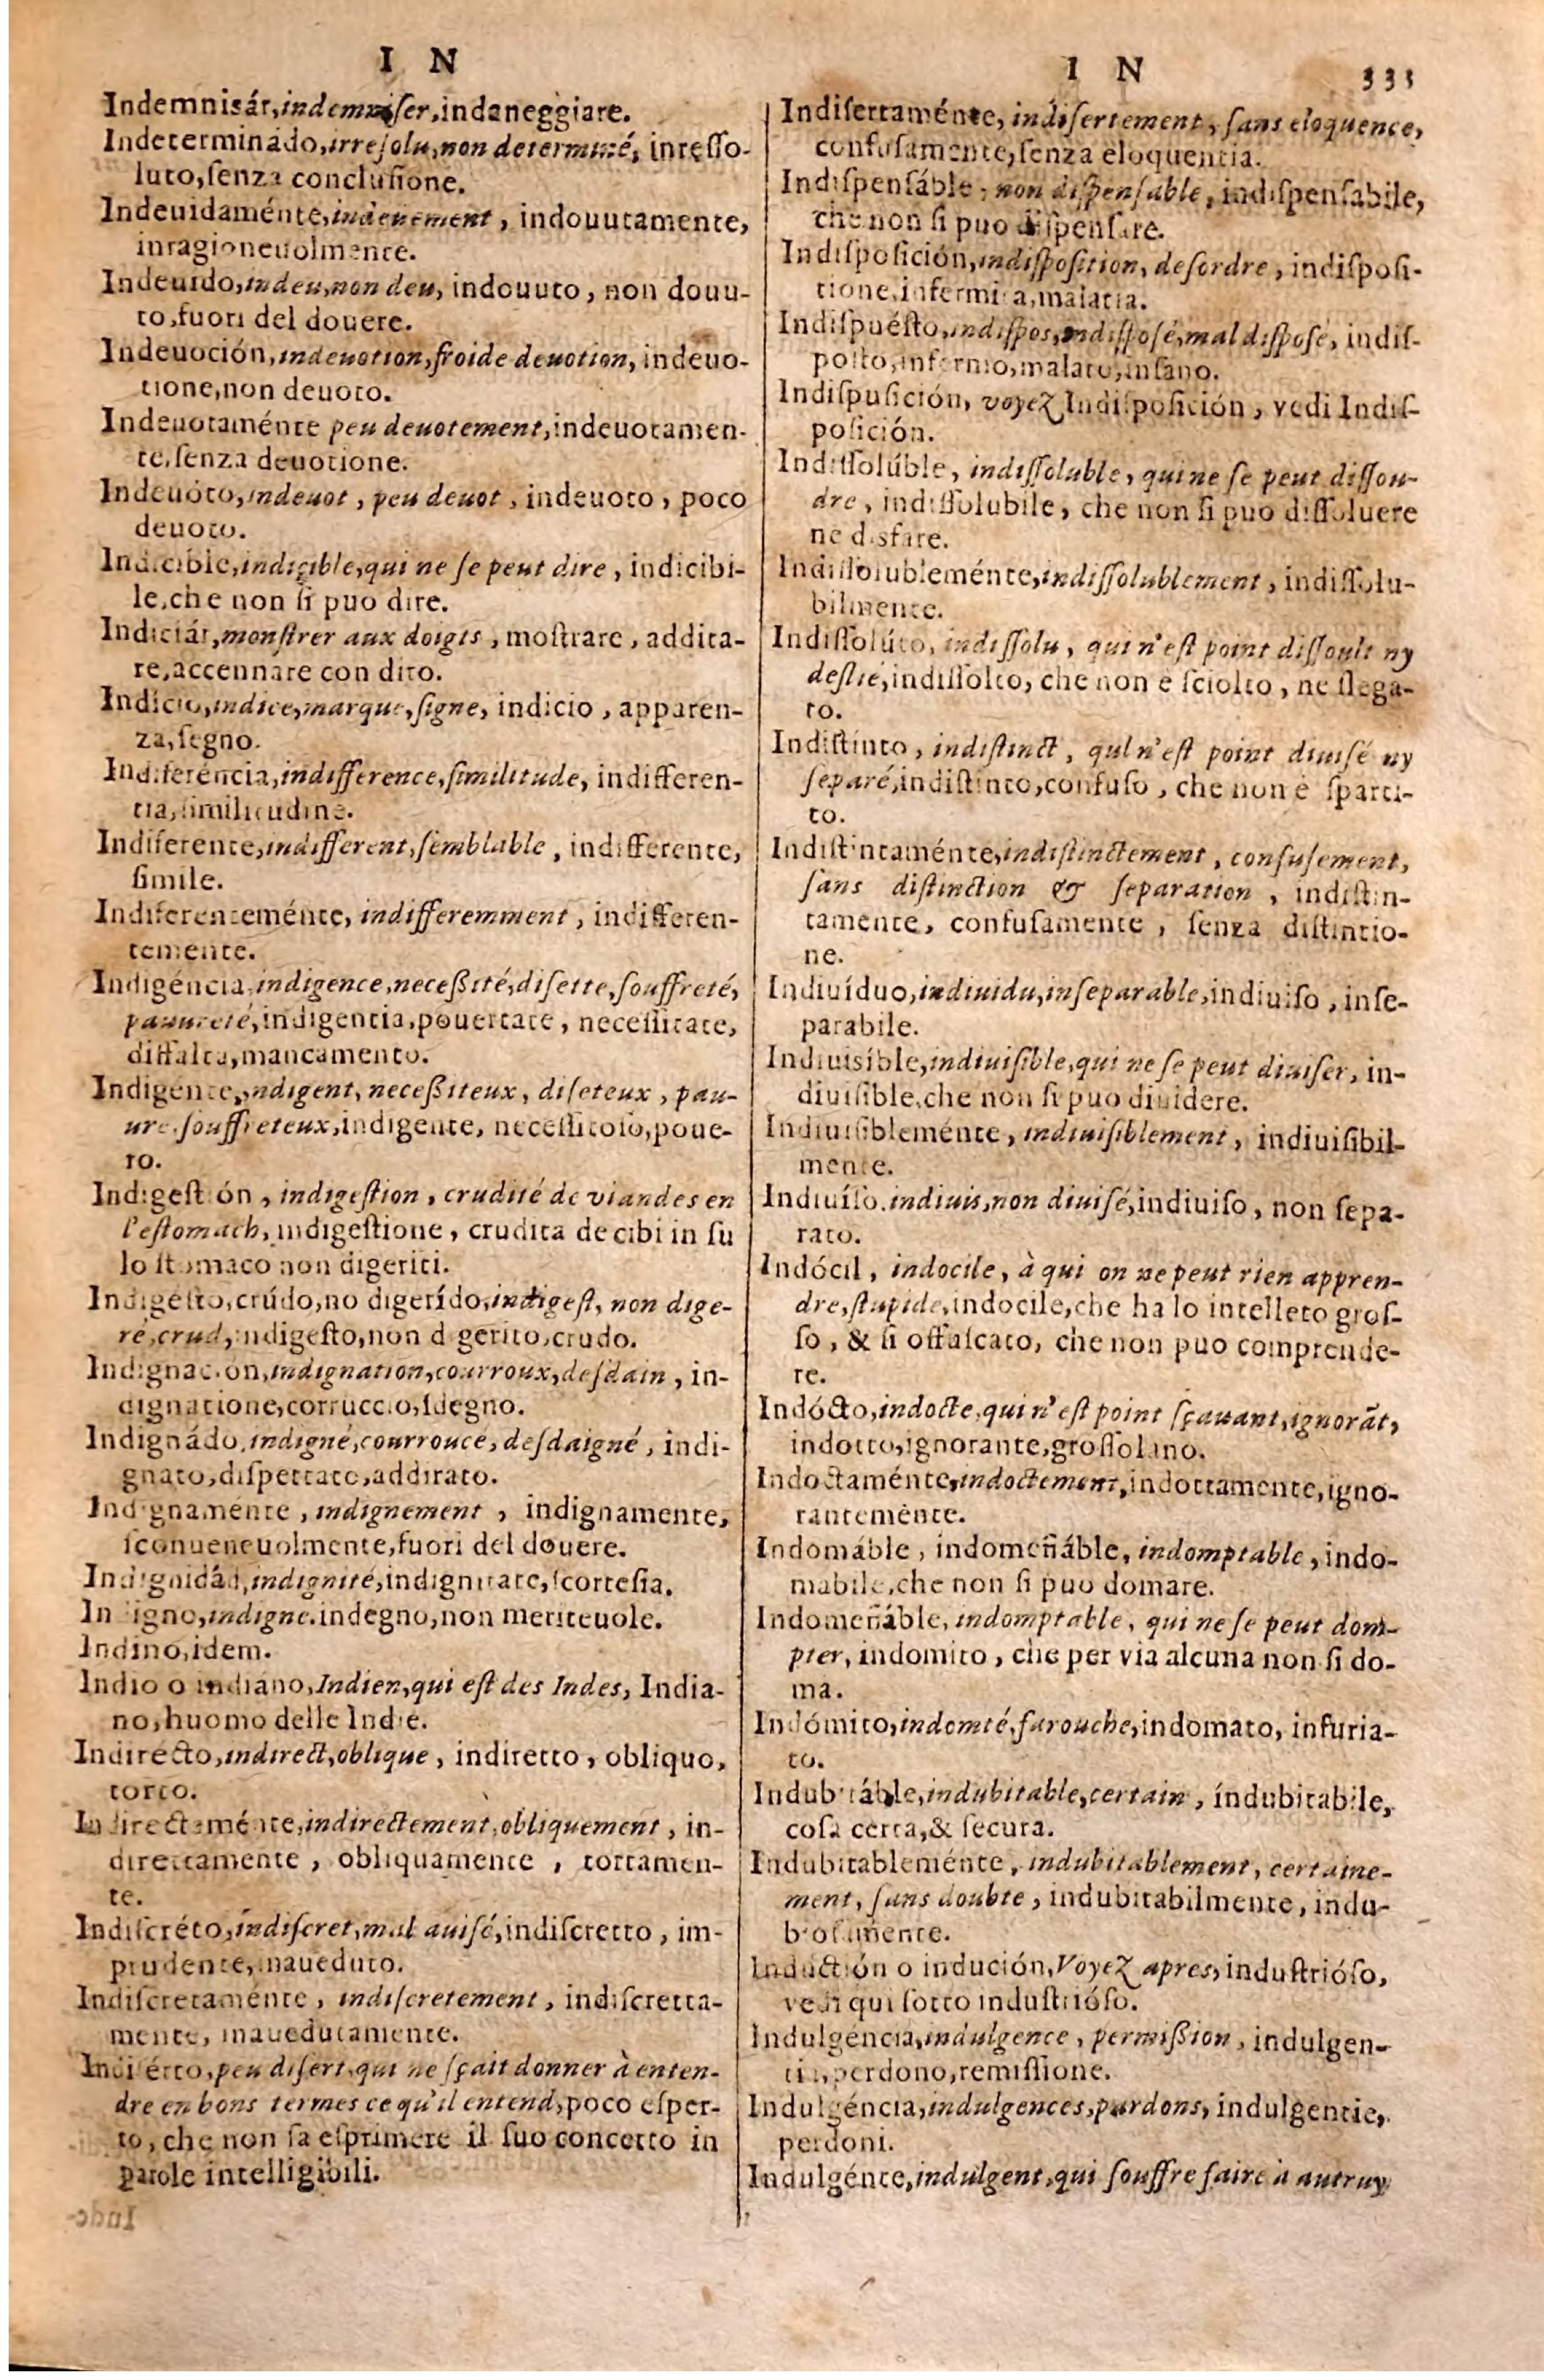 I N
Indemnisár, indemniser, indaneggiare.
Indeterminádo, irresolu, non determiné, inresso-
luto, senza conclusione.
Indeuidaménte, indeuement, indouutamente,
inragioneuolmente.
Indeuido, indeu, non deu, indouuto, non douu-
to, fuori del douere.
Indeuoción, indeuotion, froide deuotion, indeuo-
tione, non deuoto.
Indeuotaménte peu deuotement, indeuotamen-
te, senza deuotione.
Indeuóto, indeuot, peu deuot, indeuoto, poco
deuoto.
Indicible, indicible, qui ne se peut dire, indicibi-
le, che non si puo dire.
Indiciár, monstrer aux doigts, mostrare, addita-
re, accennare con dito.
Indício, indice, marque, signe, indicio, apparen-
za, segno.
Indiferéncia, indifference, similitude, indifferen-
tia, similitudine.
Indiferente, indifferent, semblable, indifferente,
simile.
Indiferenteménte, indifferemment, indifferen-
temente.
Indigéncia, indigence, neceßité, disette, souffreté,
pauureté, indigentia, pouertate, necessitate,
diffalta, mancamento.
Indigente, indigent, neceßiteux, diseteux, pau-
ure, souffreteux, indigente, necessitoso, poue-
ro.
Indigestión, indigestion, crudité de viandes en
l'estomach, indigestione, crudita de cibi in su
lo stomaco non digeriti.
Indigésto, crúdo, no digerído, indigest, non dige-
ré, crud, indigesto, non digerito, crudo.
Indignación, indignation, courroux, desdain, in-
dignatione, corruccio, sdegno.
Indignádo, indigné, courroucé, desdaigné, indi-
gnato, dispettato, addirato.
Indignamente, indignement, indignamente,
sconueneuolmente, fuori del douere.
Indignidád, indignité, indignitate, scortesia.
Indigno, indigne, indegno, non meriteuole.
Indino, idem.
Indio o indiano, Indien, qui est des Indes, India-
no, huomo delle Indie.
Indirecto, indirect, oblique, indiretto, obliquo,
torto.
Indirectaménte, indirectement, obliquement, in-
direttamente, obliquamente, tortamen-
te.
Indiscréto, indiscret, mal auisé, indiscretto, im-
prudente, inaueduto.
Indiscretaménte, indiscretement, indiscretta-
mente, inauedutamente.
Indisérto, peu disert, qui ne sçait donner à enten-
dre en bons termes ce qu'il entend, poco esper-
to, che non sa esprimere il suo concetto in
parole intelligibili.
I N 335
Indisertaménte, indisertement, sans eloquence,
confusamente, senza eloquentia.
Indispensáble, non dispensable, indispensabile,
che non si puo dispensare.
Indisposición, indisposition, desordre, indisposi-
tione, infermita, malatia.
Indispuésto, indispos, indisposé, mal disposé, indis-
posto, infermo, malato, insano.
Indispusición, voyez Indisposición, vedi Indis-
posición.
Indissolúble, indissoluble, qui ne se peut dissou-
dre, indissolubile, che non si puo dissoluere
ne disfare.
Indissolubleménte, indissolublement, indissolu-
bilmente.
Indissolúto, indissolu, qui n'est point dissoult ny
deslié, indissolto, che non è sciolto, ne slega-
to.
Indistinto, indistinct, qui n'est point diuisé ny
separé, indistinto, confuso, che non è sparti-
to.
Indistintaménte, indistinctement, confusement,
sans distinction & separation, indistin-
tamente, confusamente, senza distintio-
ne.
Indiuíduo, indiuidu, inseparable, indiuiso, inse-
parabile.
Indiuisíble, indiuisible, qui ne se peut diuiser, in-
diuisible, che non si puo diuidere.
Indiuisibleménte, indiuisiblement, indiuisibil-
mente.
Indiuíso, indiuis, non diuisé, indiuiso, non sepa-
rato.
Indócil, indocile, à qui on ne peut rien appren-
dre, stupide, indocile, che ha lo intelleto gros-
so, & si offascato, che non puo comprende-
re.
Indócto, indocte, qui n'est point sçauant, ignorãt,
indotto, ignorante, grossolano.
Indoctaménte, indoctement, indottamente, igno-
rantemènte.
Indomáble, indomeñáble, indomptable, indo-
mabile, che non si puo domare.
Indomeñáble, indomptable, qui ne se peut dom-
pter, indomito, che per via alcuna non si do-
ma.
Indómito, indomté, farouche, indomato, infuria-
to.
Indubitáble, indubitable, certain, indubitabile,
cosa certa, & secura.
Indubitableménte, indubitablement, certaine-
ment, sans doubte, indubitabilmente, indu-
biosamente.
Inductión o indución, Voyez apres, industrióso,
vedi qui sotto industrióso.
Indulgéncia, indulgence, permißion, indulgen-
tia, perdono, remissione.
Indulgéncia, indulgences, pardons, indulgentie,
perdoni.
Indulgénte, indulgent, qui souffre faire à autruy